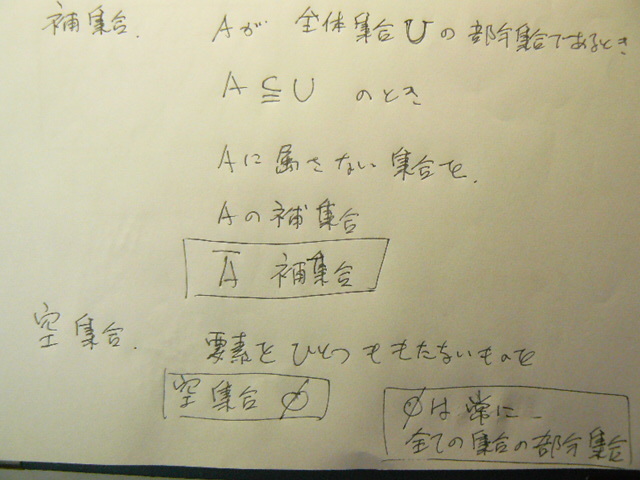 補集合. Aが 全体集合Uの部分集合であるとき
A⊆U のとき
Aに属さない集合を.
Aの補集合
A̅ 補集合
空集合. 要素をひとつももたないものを
空集合 ∅
∅は常に
全ての集合の部分集合